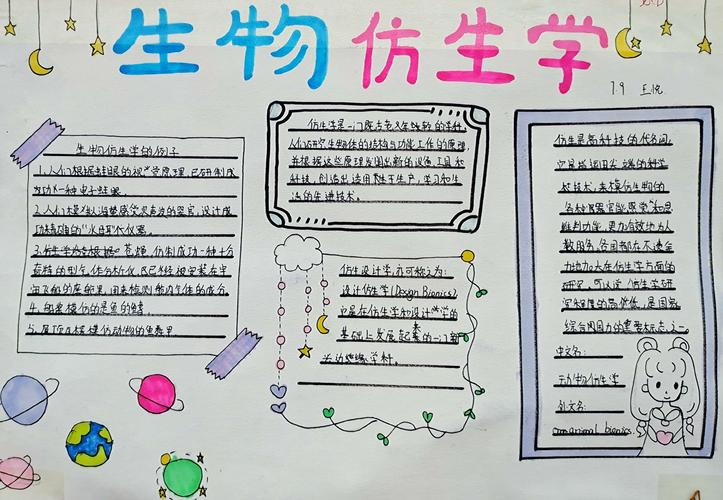 生物仿生学
7.9 王悦
生物仿生学的例子
1.人们根据蛙眼的视觉原理,已研制成
功一种电子蛙眼。
2.人们模仿海蜇感觉次声波的器官,设计成
功精确的"水母耳"仪器。
3.仿生学家根据苍蝇,仿制成功一种十分
奇特的小型气体分析仪,已已经被安装在宇
宙飞船的座舱里,用来检测舱内气体的成分。
4.船桨模仿的是鱼的鳍
5.屋顶瓦楞模仿动物的鱼鳞甲
仿生学是一门既古老又年轻的学科
人们研究生物体的结构与功能工作的原理,
并根据这些原理发明出新的设备、工具和
科技,创造出适用于生产,学习和生
活的先进技术。
仿生设计学,亦可称之为:
设计仿生学(Design Bionics)
它是在仿生学和设计学的
基础上发展起来的一门新
兴边缘学科。
仿生是高科技的代名词,
它是运用尖端的科学
和技术,来模仿生物的
各种器官能感觉和思
维判功能,更加有效地为人
类服务,各国都在不遗余
力地加大在仿生学方面的
研究,可以说仿生学研
究程度的高低,是国家
综合国力的重要标志之一。
中文名:
动物仿生学
外文名:
animal bionics